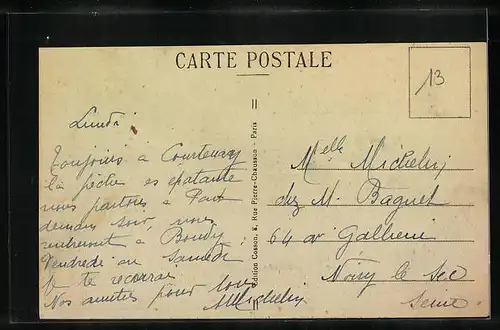 CARTE POSTALE
13
Lundi
Toujours a Courtenay
la pêche es epatante
nous partons a
demain soir, nous
a Bondy
Vendredi ou Samedi
Je te
Nos amities pour tous
Michelin
Edition Cosson, 8, Rue Pierre-Chausson - Paris
Melle Michelin
chez M. Baguet
64 av Gallieni
Noisy le Sec
Seine